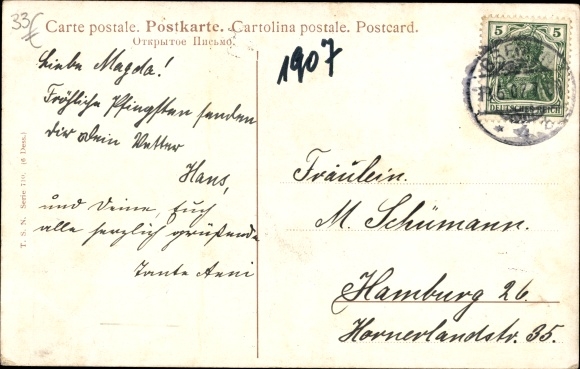 33
Carte postale. Postkarte. Cartolina postale. Postcard.
Открытое Письмо.
Liebe Magda!
Fröhliche Pfingsten senden
dir dein Vetter
Hans,
und Deine, Euch
alle herzlich grüßende
Tante Anni
T. S. N. Serie 710. (6 Dess.)
1907
5 5
DEUTSCHES REICH
Fräulein.
M. Schümann.
Hamburg 26.
Hornerlandstr. 35.